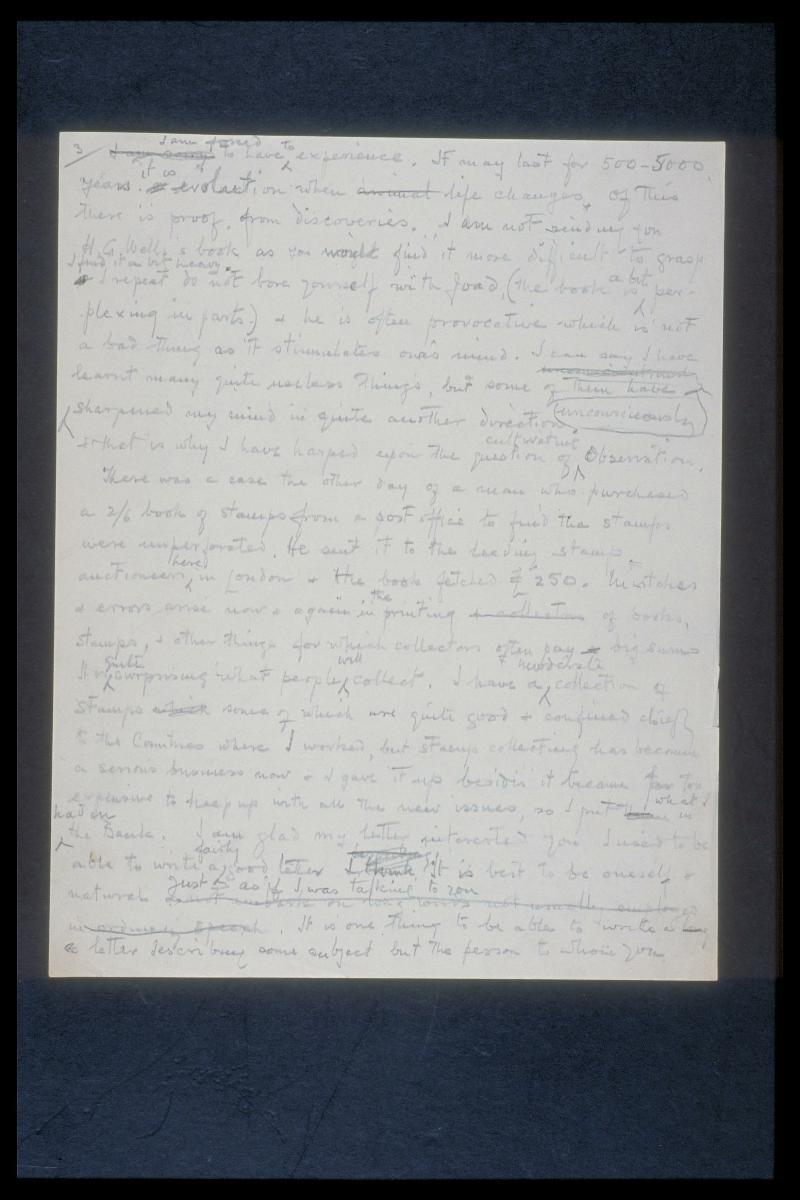 3
I am forced to
I am sorry to have experience. It may last for 500-5000
it is
years. evolution when animal life changes. Of this
there is proof from discoveries. I am not sending you
H.G. Wells's book as you would find it more difficult to grasp
I find it a bit heavy
I repeat do not bore yourself with Joad, (the book is a bit per-
plexing in parts.) & he is often provocative which is not
a bad thing as it stimulates one's mind. I can say I have
learnt many quite useless things, but some of them have
unconsciously
sharpened my mind in quite another direction.
cultivating
& that is why I have harped upon the question of Observation.
There was a case the other day of a man who purchased
a 2/6 book of stamps from a post office to find the stamps
were unperforated. He sent it to the leading stamp
here
auctioneers in London & the book fetched £250. Mistakes
the
& errors arise now & again in printing & collectors of books,
stamps, & other things for which collectors often pay big sums
quite will moderate
It is surprising what people collect. I have a collection of
stamps which some of which are quite good & confined chiefly
to the Countries where I worked, but stamp collecting has become
a serious business now & I gave it up besides it became far too
expensive to keep up with all the new issues, so I put what I
had on in
the Bank. I am glad my letter interested you. I used to be
fairly
able to write a good letter I think. It is best to be oneself &
just as if I was talking to you
natural do not embark on long words not usually employed
in ordinary speech. It is one thing to be able to write a
a letter describing some subject but the person to whom you